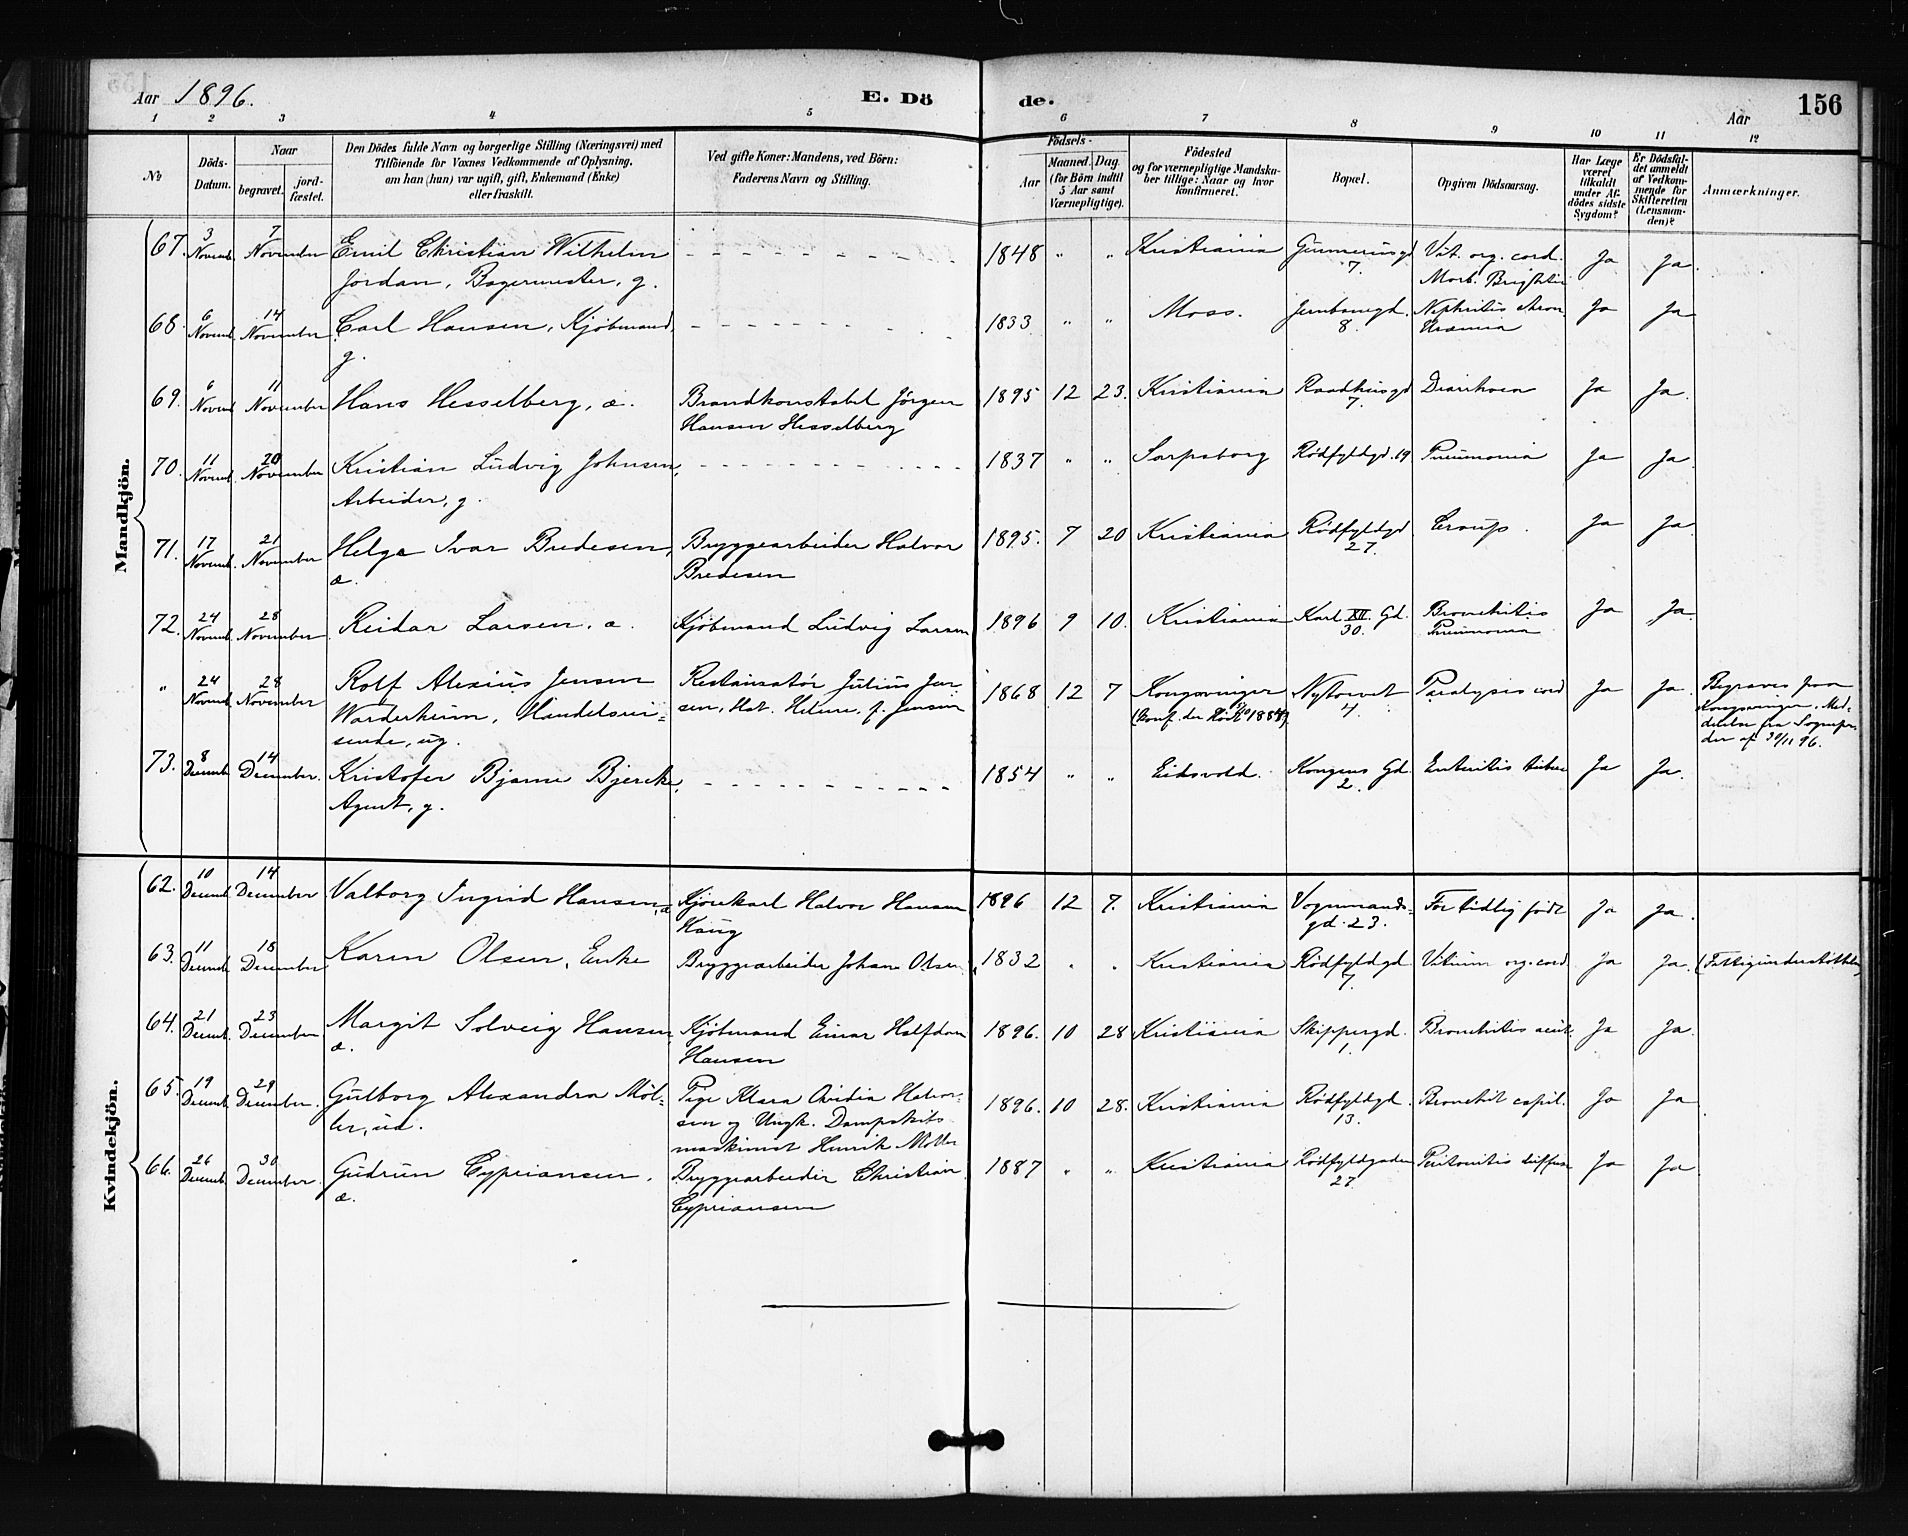 Aar 1896. E. Dö de. Aar 156
1 2 3 4 5 6 7 8 9 10 11 12
No
Döds-
Datum.
Naar
begravet.
jord-
fæstet.
Den Dödes fulde Navn og borgerlige Stilling (Næringsvei) med
Tilföiende for Voxnes Vedkommende af Oplysning,
om han (hun) var ugift, gift, Enkemand (Enke)
eller fraskilt.
Ved gifte Koner: Mandens, ved Börn:
Faderens Navn og Stilling.
Födsels-
Aar
Maaned. Dag.
(for Börn indtil
5 Aar samt
Værnepligtige).
Födested
og for værnepligtige Mandska-
ber tillige: Naar og hvor
konfirmeret.
Bopæl.
Opgiven Dödsaarsag.
Har Læge
været
tilkaldt
under Af-
dödes sidste
Sygdom?
Er Dödsfal-
det anmeldt
af Vedkom-
mende for
Skifteretten
(Lensman-
den)?
Anmærkninger.
Mandkjön.
67. 3 Novemb. 7 November Emil Christian Wilhelm 1848 " " Kristiania Gunnerusgd Vit. org. cord. Ja Ja.
Jordan, Bagermester, g. 7. Morb. Brightii
68. 6 Novemb. 14 November Carl Hansen, Kjöbmand, 1833 " " Moss. Jernbanegd. Nephritis chron. Ja Ja
g. 8. Uræmia
69. 6 Novemb 11 November Hans Hesselberg, æ. Brandkonstabel Jörgen 1895 12 23. Kristiania Raadhusgd Diarrhoea Ja Ja.
Hansen Hesselberg 7.
70. 11 Novemb. 20 November Kristian Ludvig Johnsen, 1837 " " Sarpsborg Rödfyldgd. 19 Pneumonia Ja Ja.
Arbeider, g.
71. 17 Novemb. 21 November Helge Ivar Bredesen, Bryggearbeider Halvor 1895. 7 20 Kristiania Rödfyldgd Croup. Ja Ja.
æ. Bredesen 27.
72. 24 Novemb. 28 November Reidar Larsen. æ. Kjöbmand Ludvig Larsen 1896 9 10. Kristiania Karl XII. Gd. Bronchitis Ja Ja.
30. Pneumonia
" 24 Novemb. 28 November Rolf Alexius Jensen Restauratör Julius Jen- 1868 12 7 Kongsvinger Nytorvet Paralysis cord Ja Ja. Begraves paa
Warderheim, Handelsrei- sen, Hst. Helene, f. Jensen 4. Kongsvinger. Med-
sende, ug. delelse fra Sognepr.
der af 30/11 96.
73. 8 Decemb. 14 December. Kristofer Bjarne Bjercke, 1854 " " Eidsvold. Kongens Gd. Enteritis tuberc Ja Ja.
Agent, g. 2.
Kvindekjön.
62. 10 Decemb. 14 December Valborg Ingrid Hansen, æ Kjörekarl Halvor Hansen 1896 12 7. Kristiania Vognmands- For tidlig födt Ja Ja.
Haug gd. 23.
63. 11 Decemb. 18 December Karen Olsen, Enke Bryggearbeider Johan Olsen 1832 " " Kristiania Rödfyldgd Vitium org. cord Ja Ja. (Fattigunderstöttelse)
7.
64. 21 Decemb. 23 December Margit Solveig Hansen Kjöbmand Einar Halfdan 1896. 10 28 Kristiania Skippergd. Bronchitis acut. Ja Ja.
æ. Hansen 1.
65. 19 Decemb. 29 December. Gulborg Alexandra Möl- Pige Klara Ovidia Halvor- 1896. 10 28. Kristiania Rödfyldgd. Bronchit capil. Ja Ja
ler, uæ. sen og Ungk. Dampskibs 13.
maskinist Henrik Möller
66. 26 Decemb. 30 December. Gudrun Cypriansen, Bryggearbeider Christian 1887 " " Kristiania Rödfyldgaden Peritonitis diffusa Ja Ja
æ. Cypriansen 27.